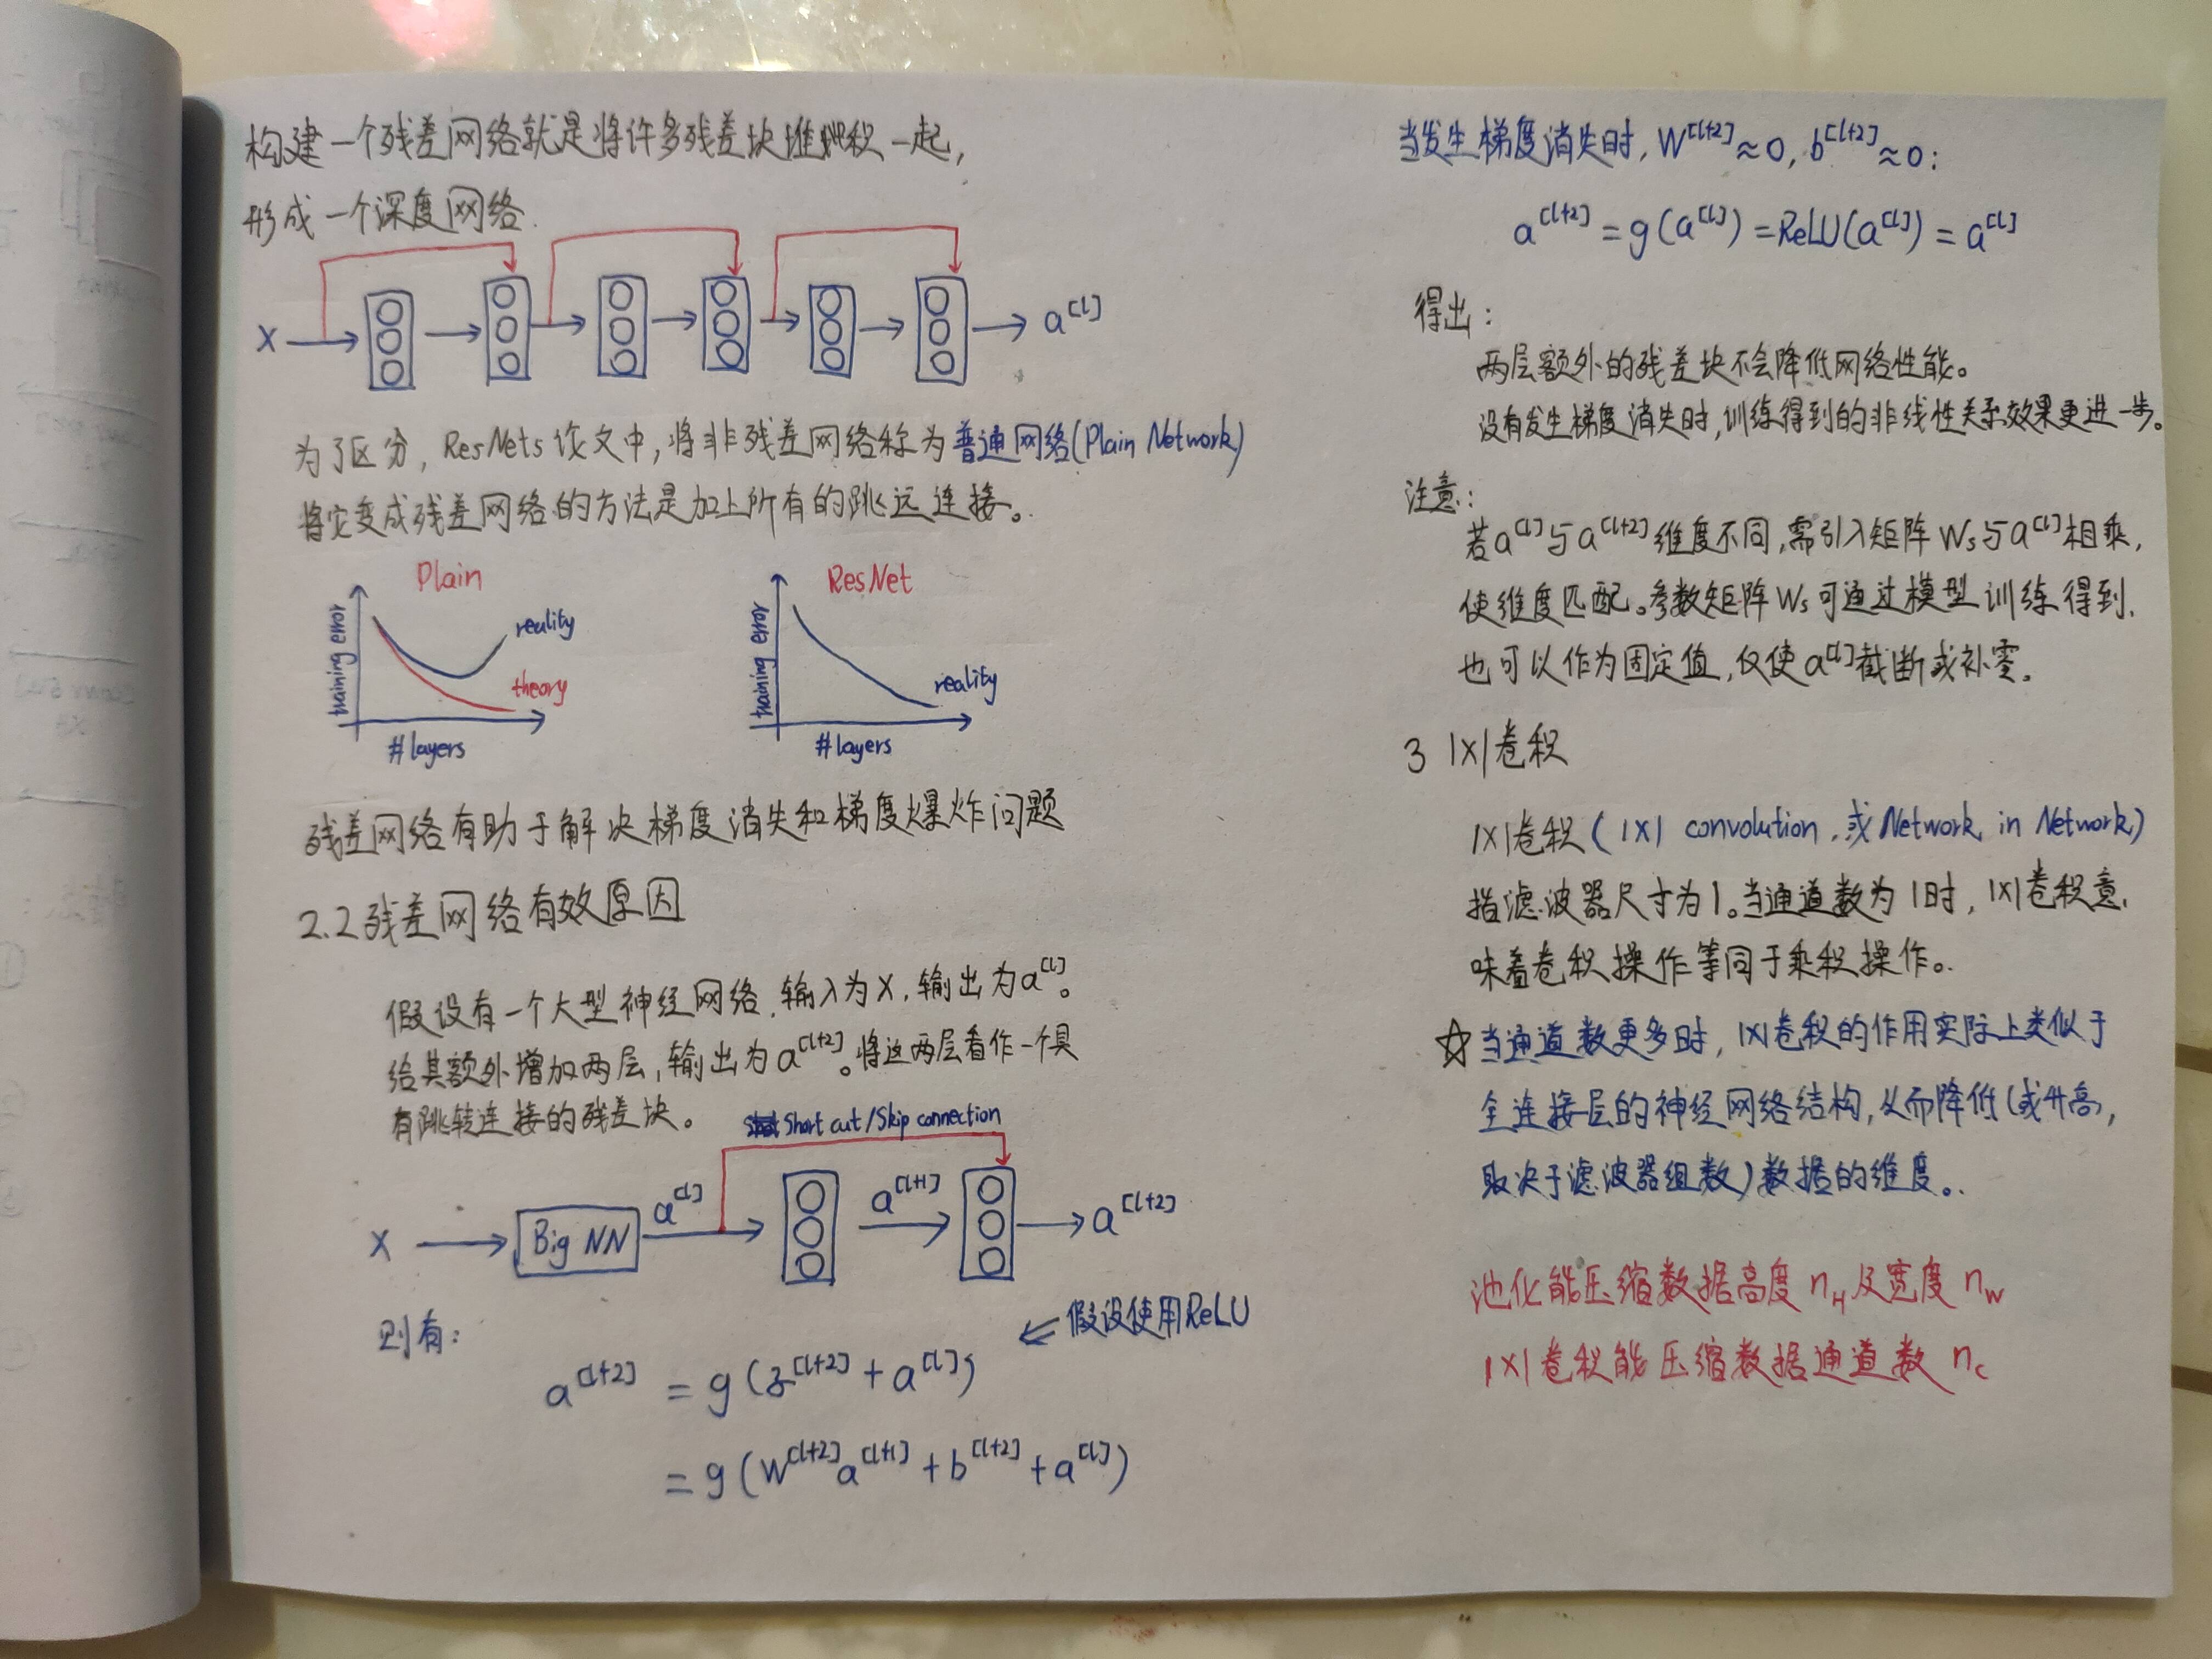 构建一个残差网络就是将许多残差块堆积一起,
形成一个深度网络.
X
a^[l]
为了区分, ResNets 论文中, 将非残差网络称为普通网络(Plain Network)
将它变成残差网络的方法是加上所有的跳远连接。
Plain
training error
reality
theory
#layers
ResNet
training error
reality
#layers
残差网络有助于解决梯度消失和梯度爆炸问题
2.2 残差网络有效原因
假设有一个大型神经网络, 输入为X, 输出为a^[l]。
给其额外增加两层, 输出为a^[l+2]。将这两层看作一个具
有跳转连接的残差块。
Short cut/Skip connection
X
Big NN
a^[l]
a^[l+1]
a^[l+2]
则有:
⇐ 假设使用ReLU
a^[l+2] = g(z^[l+2] + a^[l])
= g(W^[l+2] a^[l+1] + b^[l+2] + a^[l])
当发生梯度消失时, W^[l+2]≈0, b^[l+2]≈0:
a^[l+2] = g(a^[l]) = ReLU(a^[l]) = a^[l]
得出:
两层额外的残差块不会降低网络性能。
没有发生梯度消失时, 训练得到的非线性关系效果更进一步。
注意:
若a^[l]与a^[l+2]维度不同, 需引入矩阵Ws与a^[l]相乘,
使维度匹配。参数矩阵Ws可通过模型训练得到,
也可以作为固定值, 仅使a^[l]截断或补零。
3 1X1卷积
1X1卷积(1X1 convolution, 或Network in Network)
指滤波器尺寸为1。当通道数为1时, 1X1卷积意
味着卷积操作等同于乘积操作。
☆当通道数更多时, 1X1卷积的作用实际上类似于
全连接层的神经网络结构, 从而降低(或升高,
取决于滤波器组数)数据的维度。
池化能压缩数据高度 n_H 及宽度 n_W
1X1卷积能压缩数据通道数 n_C